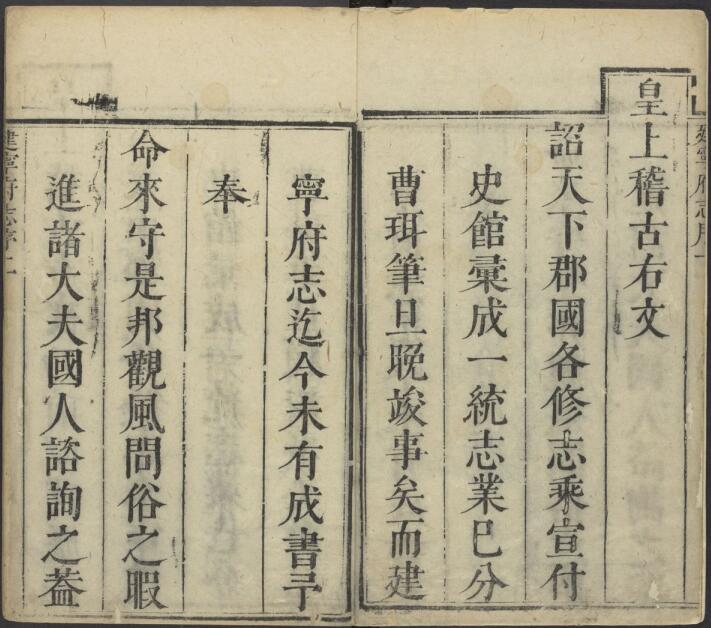 皇上稽古右文
詔天下郡國各修志乘宣付
史館彙成一統志業已分
曹珥筆旦晚竣事矣而建
寧府志迄今未有成書予
奉
命來守是邦觀風問俗之暇
進諸大夫國人諮詢之葢
建寧府志序二